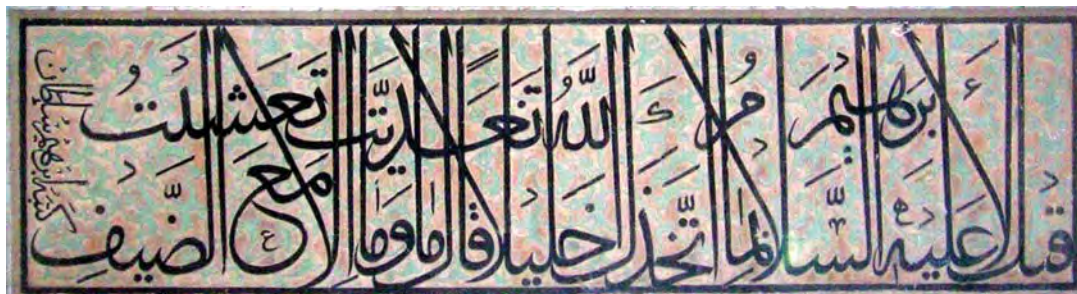 قيل لابرهيم عليه السلام بما اتخذك الله تعالى خليلا قال ما تغديت وما تعشيت الا مع الضيف
كتبه ابرهيم سلطان